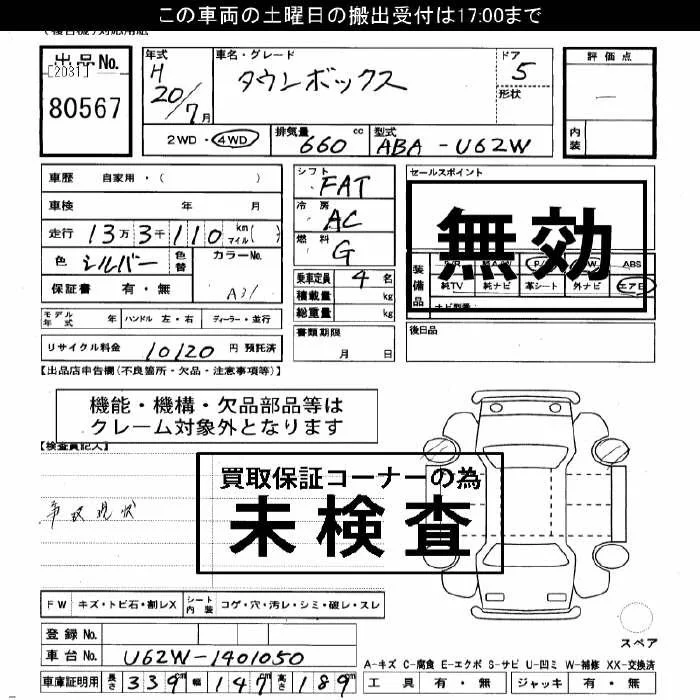 この車両の土曜日の搬出受付は17:00まで
出品No.
[2031]
80567
年式
H
20/7月
車名・グレード
タウンボックス
ドア
5
形状
評価点
内装
2WD・4WD
排気量
660 cc
型式
ABA-U62W
車歴 自家用・( )
車検 年 月
走行 13万3千110 km マイル( )
色 シルバー
色替
カラーNo.
A31
保証書 有・無
シフト
FAT
冷房
AC
燃料
G
乗車定員 4名
積載量 kg
総重量 kg
セールスポイント
無効
装備品
ABS
純TV 純ナビ 革シート 外ナビ エアB
ナビ型番:
モデル年式 年 ハンドル 左・右 ディーラー・並行
書類期限
月 日
後日品
リサイクル料金 10120 円 預託済
【出品店申告欄(不良箇所・欠品・注意事項等)】
機能・機構・欠品部品等は
クレーム対象外となります
【検査員記入】
買取保証コーナーの為
未検査
事故現状
FW キズ・トビ石・割レX シート内装 コゲ・穴・汚レ・シミ・破レ・スレ
スペア
登録No.
車台No. U62W-1401050
A-キズ C-腐食 E-エクボ S-サビ U-凹ミ W-補修 XX-交換済
車庫証明用 長さ 339m 幅 147m 高さ 189m
工具 有・無 ジャッキ 有・無